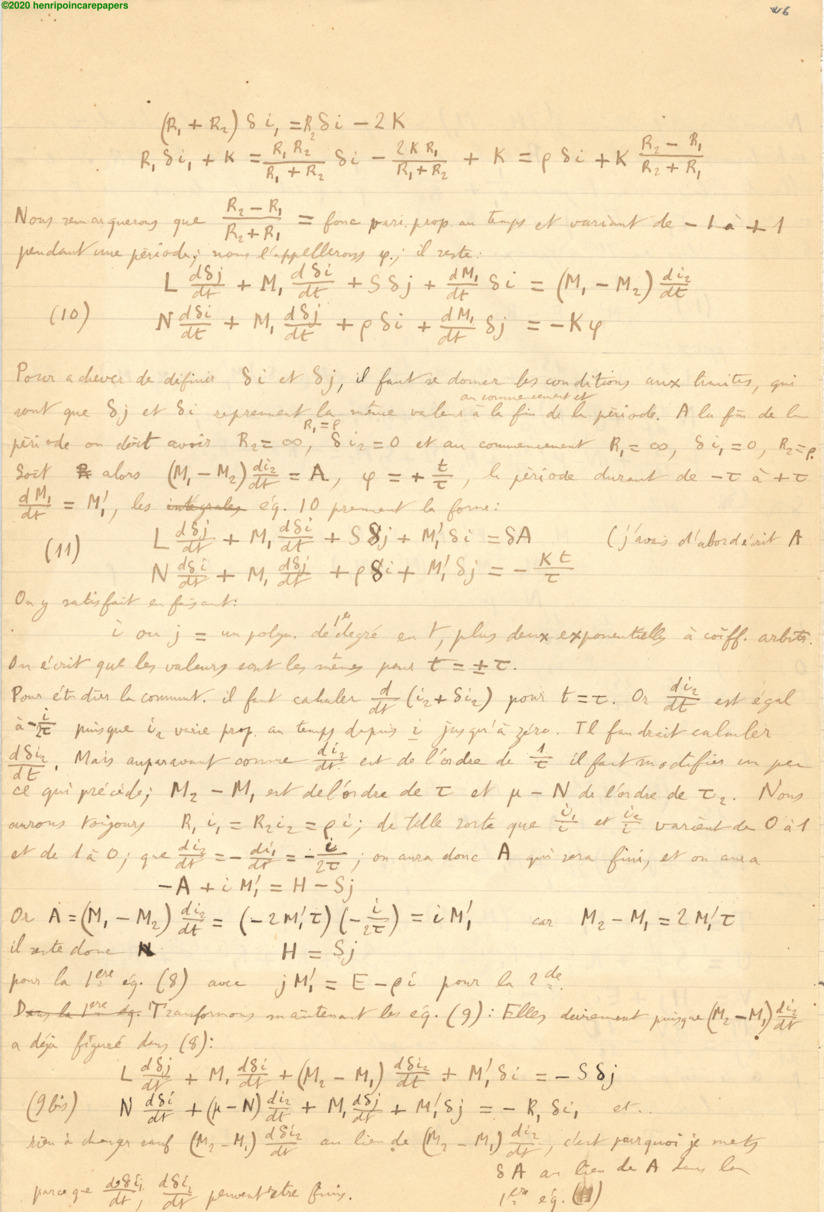 ©2020 henripoincarepapers
(R₁ + R₂) δi₁ = R₂ δi − 2K
R₁ δi₁ + K = R₁R₂/(R₁ + R₂) δi − 2KR₁/(R₁ + R₂) + K = ρ δi + K (R₂ − R₁)/(R₂ + R₁)
Nous remarquerons que (R₂ − R₁)/(R₂ + R₁) = fonc prop. au temps et variant de −1 à +1
pendant une période; nous l'appellerons φ; il reste:
L dδj/dt + M₁ dδi/dt + Sδj + dM₁/dt δi = (M₁ − M₂) di₂/dt
(10) N dδi/dt + M₁ dδj/dt + ρδi + dM₁/dt δj = −Kφ
Pour achever de définir δi et δj, il faut se donner les conditions aux limites, qui
au commencement et
sont que δj et δi reprennent la même valeur à la fin de la période. A la fin de la
R₁ = ρ
période on doit avoir R₂ = ∞, δi₂ = 0 et au commencement R₁ = ∞, δi₁ = 0, R₂ = ρ.
Soit alors (M₁ − M₂) di₂/dt = A, φ = + t/τ, la période durant de −τ à +τ
dM₁/dt = M₁', les intégrales éq. 10 prennent la forme:
L dδj/dt + M₁ dδi/dt + Sδj + M₁' δi = δA (j'avais d'abord écrit A
(11) N dδi/dt + M₁ dδj/dt + ρδi + M₁' δj = − Kt/τ
On y satisfait en faisant:
i ou j = un polyn. de 1er degré en t, plus deux exponentielles à coëff. arbitr.
On écrit que les valeurs sont les mêmes pour t = ±τ.
Pour étudier la commut. il faut calculer d/dt (i₂ + δi₂) pour t = τ. Or di₂/dt est égal
à − i/2τ puisque i₂ varie prop. au temps depuis i jusqu'à zéro. Il faudrait calculer
dδi₂/dt. Mais auparavant comme di₂/dt est de l'ordre de 1/τ il faut modifier un peu
ce qui précède; M₂ − M₁ est de l'ordre de τ et μ − N de l'ordre de τ₂. Nous
aurons toujours R₁i₁ = R₂i₂ = ρi; de telle sorte que i₁/i et i₂/i varient de 0 à 1
et de 1 à 0; que di₂/dt = − di₁/dt = − i/2τ; on aura donc A qui sera fini, et on aura
−A + i M₁' = H − Sj
Or A = (M₁ − M₂) di₂/dt = (−2M₁'τ)(− i/2τ) = i M₁' car M₂ − M₁ = 2M₁'τ
il reste donc H = Sj
pour la 1ère éq. (8) avec jM₁' = E − ρi pour la 2de.
Dans la 1ère éq. Transformons maintenant les éq. (9): Elles deviennent puisque (M₂ − M₁) di₂/dt
a déjà figuré dans (8):
L dδj/dt + M₁ dδi/dt + (M₂ − M₁) dδi₂/dt + M₁' δi = −Sδj
(9 bis) N dδi/dt + (μ − N) di₂/dt + M₁ dδj/dt + M₁' δj = −R₁ δi₁ et..
rien à changer sauf (M₂ − M₁) dδi₂/dt au lieu de (M₂ − M₁) di₂/dt, c'est pourquoi je mets
δA au lieu de A dans la
parce que dδi₁/dt, dδi₂/dt peuvent être finis. 1ère éq. (11)